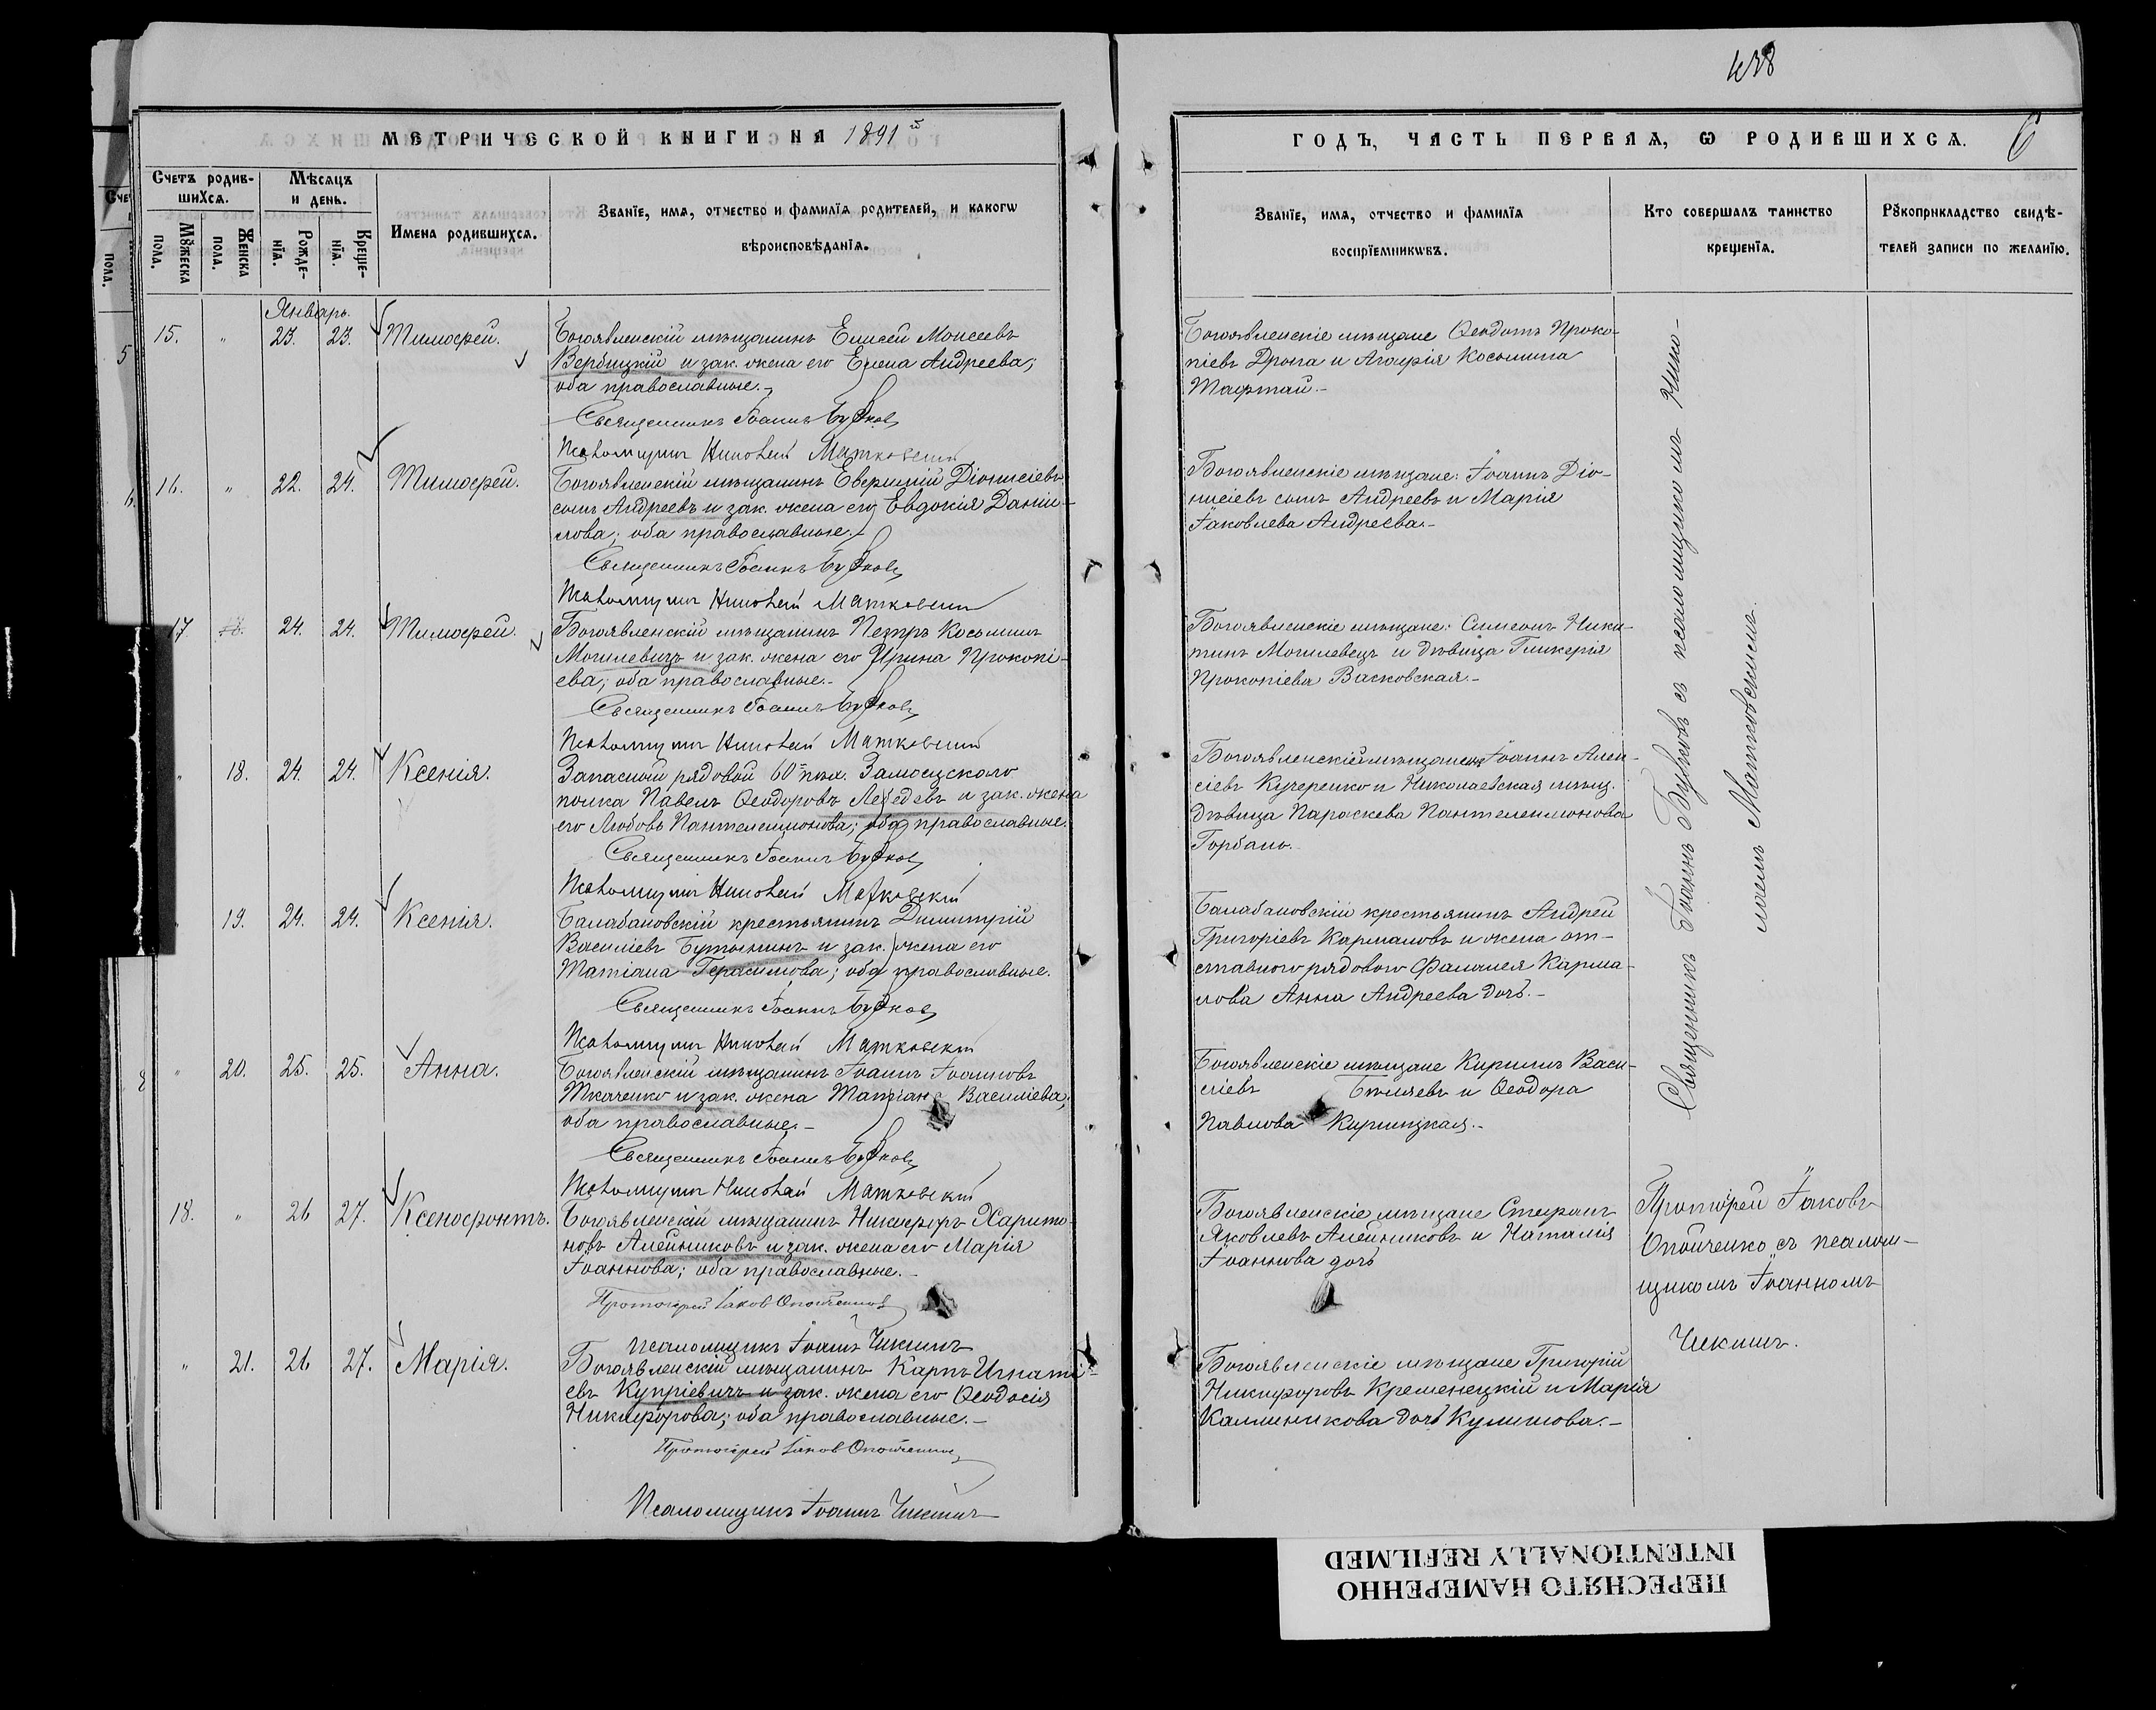 438
МЕТРИЧЕСКОЙ КНИГИ НА 1891й
ГОДЪ, ЧАСТЬ ПЕРВАЯ, Ѡ РОДИВШИХСѦ. 6
Счетъ родив-
шихсѧ.
Мꙋжеска пола.
Женска пола.
Мѣсѧцъ
и день.
Рожде-
нїѧ.
Креще-
нїѧ.
Имена родившихсѧ.
Званїе, имѧ, отчество и фамилїѧ родителей, и какогѡ
вѣроисповѣданїѧ.
Званїе, имѧ, отчество и фамилїѧ
воспрїемникѡвъ.
Кто совершалъ таинство
крещенїѧ.
Рꙋкоприкладство свидѣ-
телей записи по желанїю.
Январь.
15. " 23. 23. Тимофей.
Богоявленскій мѣщанинъ Елисей Моисеевъ
Вербицкій и зак. жена его Елена Андреева;
оба православные.-
Священникъ Іоаннъ Бу
Псаломщикъ Николай Матковский
Богоявленскіе мѣщане Ѳеодотъ Проко-
піевъ Дрыга и Агафія Косьмина
16. " 22. 24. Тимофей.
Богоявленскій мѣщанинъ Діонисіевъ
сынъ Андреевъ и зак. жена его Евдокія Даніи-
лова; оба православные.
Священникъ Іоаннъ
Псаломщикъ Николай Матковский
Богоявленскіе мѣщане: Іоаннъ Діо-
нисіевъ сынъ Андреевъ и Марія
Іаковлева Андреева.-
17 24. 24. Тимофей.
Богоявленскій мѣщанинъ Петръ Косьминъ
Могилевичъ и зак. жена его Ирина Прокопі-
ева; оба православные.-
Священникъ Іоаннъ
Псаломщикъ Николай Матковский
Богоявленскіе мѣщане: Симеонъ Ники-
тинъ Могилевецъ и дѣвица Гликерія
Прокопіева Васковская.-
" 18. 24. 24. Ксенія.
Запасной рядовой 60 пѣх. Замосцскаго
полка Павелъ Ѳеодоровъ Лебедевъ и зак. жена
его Любовь Пантелеимонова; оба православные.
Священникъ Іоаннъ
Псаломщикъ Николай Матковский
Богоявленскій мѣщанинъ Іоаннъ Алек-
сіевъ Кучеренко и Николаевская мѣщ.
дѣвица Параскева Пантелеимонова
Горбань.
" 19. 24. 24. Ксенія.
Балабановскій крестьянинъ Димитрій
Василіевъ и зак. жена его
Татіана Герасимова; оба православные.
Священникъ Іоаннъ
Псаломщикъ Николай Матковский
Балабановскій крестьянинъ Андрей
Григоріевъ Кармаловъ и жена от-
ставного рядового Карма-
лова Анна Андреева дочь.-
" 20. 25. 25. Анна.
Богоявленскій мѣщанинъ Іоаннъ Іоанновъ
Ткаченко и зак. жена Татіана Василіева;
оба православные.-
Священникъ Іоаннъ
Псаломщикъ Николай Матковский
Богоявленскіе мѣщане Кириллъ Васи-
ліевъ Бѣляевъ и Ѳеодора
Павлова
Священникъ Іоаннъ съ псаломщикомъ Нико-
лаемъ Матковскимъ.
18. " 26 27. Ксенофонтъ.
Богоявленскій мѣщанинъ Никифоръ Харито-
новъ Алейниковъ и зак. жена его Марія
Іоаннова; оба православные.-
Протоіерей Іаков
Псаломщикъ Іоаннъ Чекинъ
Богоявленскіе мѣщане Стефанъ
Яковлевъ Алейниковъ и Наталія
Іоаннова дочь
Протоіерей Іаковъ
съ псалом-
щикомъ Іоанномъ
" 21. 26 27. Марія.
Богоявленскій мѣщанинъ Карпъ Игнаті-
евъ Купріевичъ и зак. жена его Ѳеодосія
Никифорова; оба православные.-
Протоіерей Іаков
Псаломщикъ Іоаннъ Чекинъ
Богоявленскіе мѣщане Григорій
Никифоровъ Кременецкій и Марія
Каллиникова дочь Кулишова.-
ПЕРЕСНЯТО НАМЕРЕННО
INTENTIONALLY REFILMED